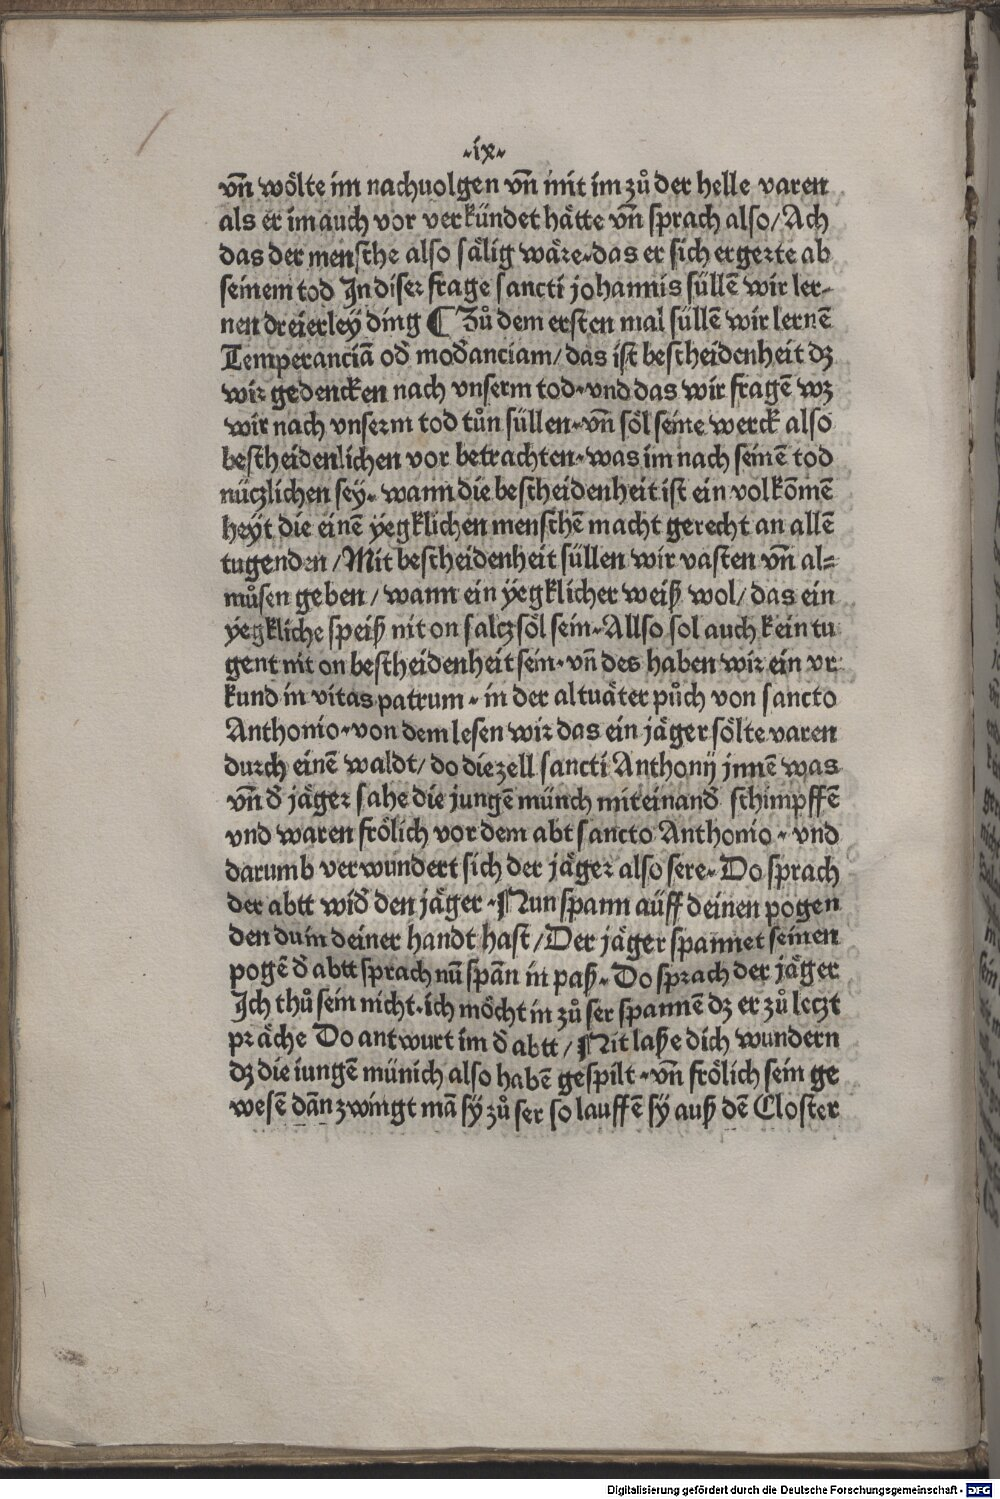 ·ix·
vñ wölte im nachuolgen vñ mit im zů der helle varen
als er im auch vor verkündet hätte vñ sprach also/Ach
das der mensche also sälig wäre·das er sich ergerte ab
seinem tod Jn diser frage sancti johannis süllē wir ler-
nen dreierley ding ¶ Zů dem ersten mal süllē wir lernē
Temperanciā oď moďanciam/das ist bescheidenheit dz
wir gedencken nach vnserm tod·vnd das wir fragē wz
wir nach vnserm tod tůn süllen·vñ söl seine werck also
bescheidenlichen vor betrachten·was im nach seinē tod
nüczlichen sey·wann die bescheidenheit ist ein volkōmē
heyt die einē yegklichen menschē macht gerecht an allē
tugenden/Mit bescheidenheit süllen wir vasten vñ al=
můsen geben/wann ein yegklicher weiß wol/das ein
yegkliche speiß nit on salcz söl sein·Allso sol auch kein tu
gent nit on bescheidenheit sein·vñ des haben wir ein vr
kund in vitas patrum·in der altuäter půch von sancto
Anthonio·von dem lesen wir das ein jäger sölte varen
durch einē waldt/do die zell sancti Anthonij jnnē was
vñ ď jäger sahe die jungē münch miteinanď schimpffē
vnd waren frölich vor dem abt sancto Anthonio·vnd
darumb verwundert sich der jäger also sere·Do sprach
der abtt wiď den jäger·Nun spann aüff deinen pogen
den du in deiner handt hast/Der jäger spannet seinen
pogē ď abtt sprach nū spān in paß·Do sprach der jäger
Jch thů sein nicht·ich möcht in zů ser spannē dz er zů leczt
präche Do antwurt im ď abtt/Nit laße dich wundern
dz die iungē münich also habē gespilt·vñ frölich sein ge
wesē dān zwingt mā sy zů ser so lauffē sy auß dē Closter
Digitalisierung gefördert durch die Deutsche Forschungsgemeinschaft - DFG